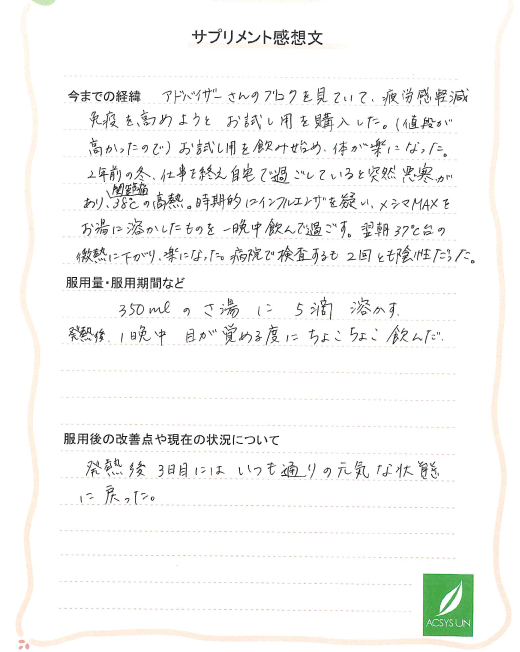 サプリメント感想文
今までの経緯 アドバイザーさんのブログを見ていて、疲労感軽減
免疫を高めようと お試し用を購入した。(値段が
高かったので) お試し用を飲み始め、体が楽になった。
2年前の冬、仕事を終え自宅で過ごしていると突然悪寒が
関節痛
あり、38℃の高熱。時期的にインフルエンザを疑い、メシマMAXを
お湯に溶かしたものを一晩中飲んで過ごす。翌朝37℃台の
微熱に下がり、楽になった。病院で検査するも2回とも陰性だった。
服用量・服用期間など
350mlのさ湯に 5滴 溶かす.
発熱後、1晩中 目が覚める度にちょこちょこ飲んだ.
服用後の改善点や現在の状況について
発熱後3日目には いつも通りの元気な状態
に戻った。
ACSYS UN